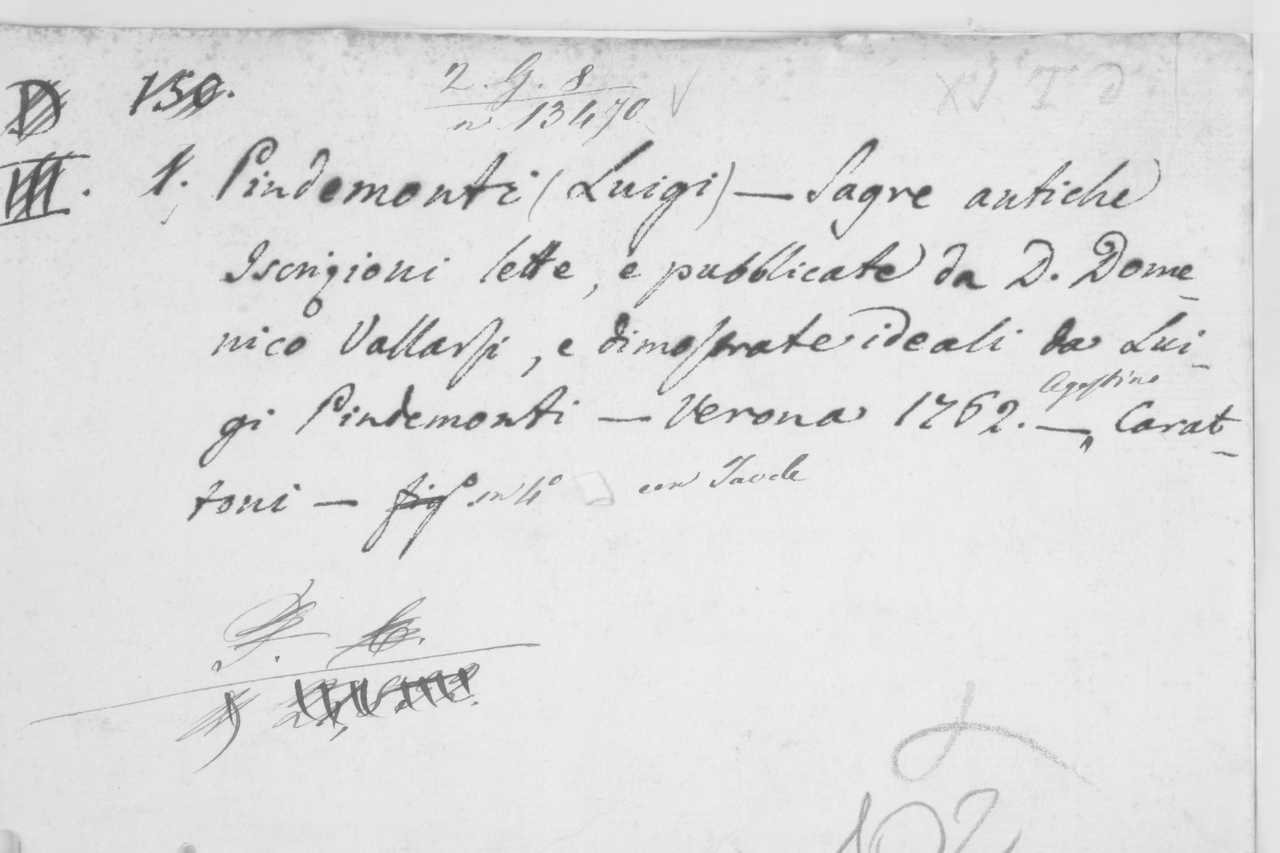 D 150. 2. G. 8
n. 13470
III. 1. Pindemonti (Luigi) — Sagre antiche
Iscrizioni lette, e pubblicate da D. Dome-
nico Vallarsi, e dimostrate ideali da Lui-
gi Pindemonti — Verona 1762. — Agostino Carat-
toni — fig.° in 4° con Tavole
102